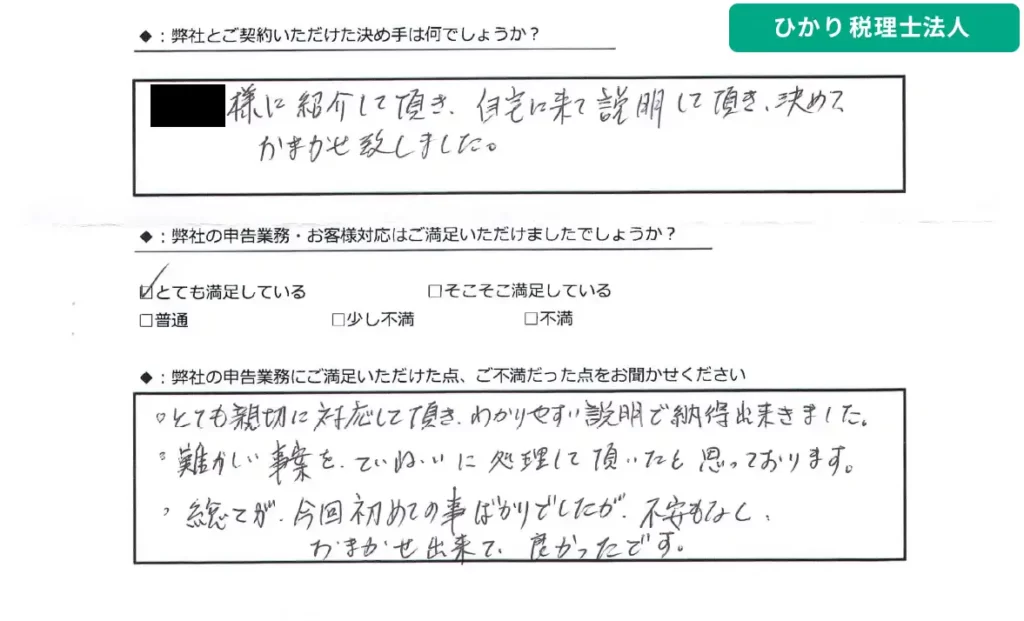 ひかり税理士法人
◆：弊社とご契約いただけた決め手は何でしょうか？
様に紹介して頂き、自宅に来て説明して頂き、決めて
おまかせ致しました。
◆：弊社の申告業務・お客様対応はご満足いただけましたでしょうか？
☑とても満足している　□そこそこ満足している
□普通　□少し不満　□不満
◆：弊社の申告業務にご満足いただけた点、ご不満だった点をお聞かせください
○とても親切に対応して頂き、わかりやすい説明で納得出来きました。
○難かしい事案を、ていねいに処理して頂いたと思っております。
、総てが、今回初めての事ばかりでしたが、不安もなく、
おまかせ出来て、良かったです。